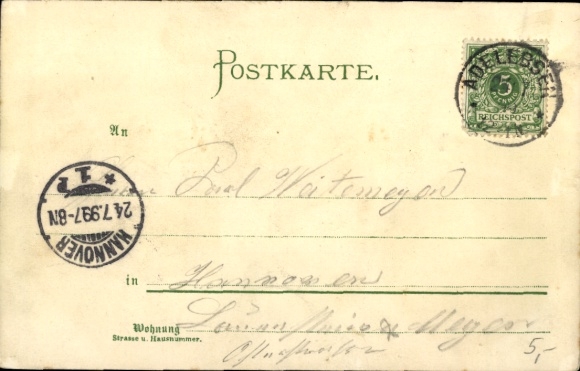 POSTKARTE.
ADELEBSEN
5
REICHSPOST
An
Herrn Paul Weitemeyer
HANNOVER
24.7.99.7-8N.
* 1 P
in Hannover
Wohnung
Strasse u. Hausnummer.
5,-